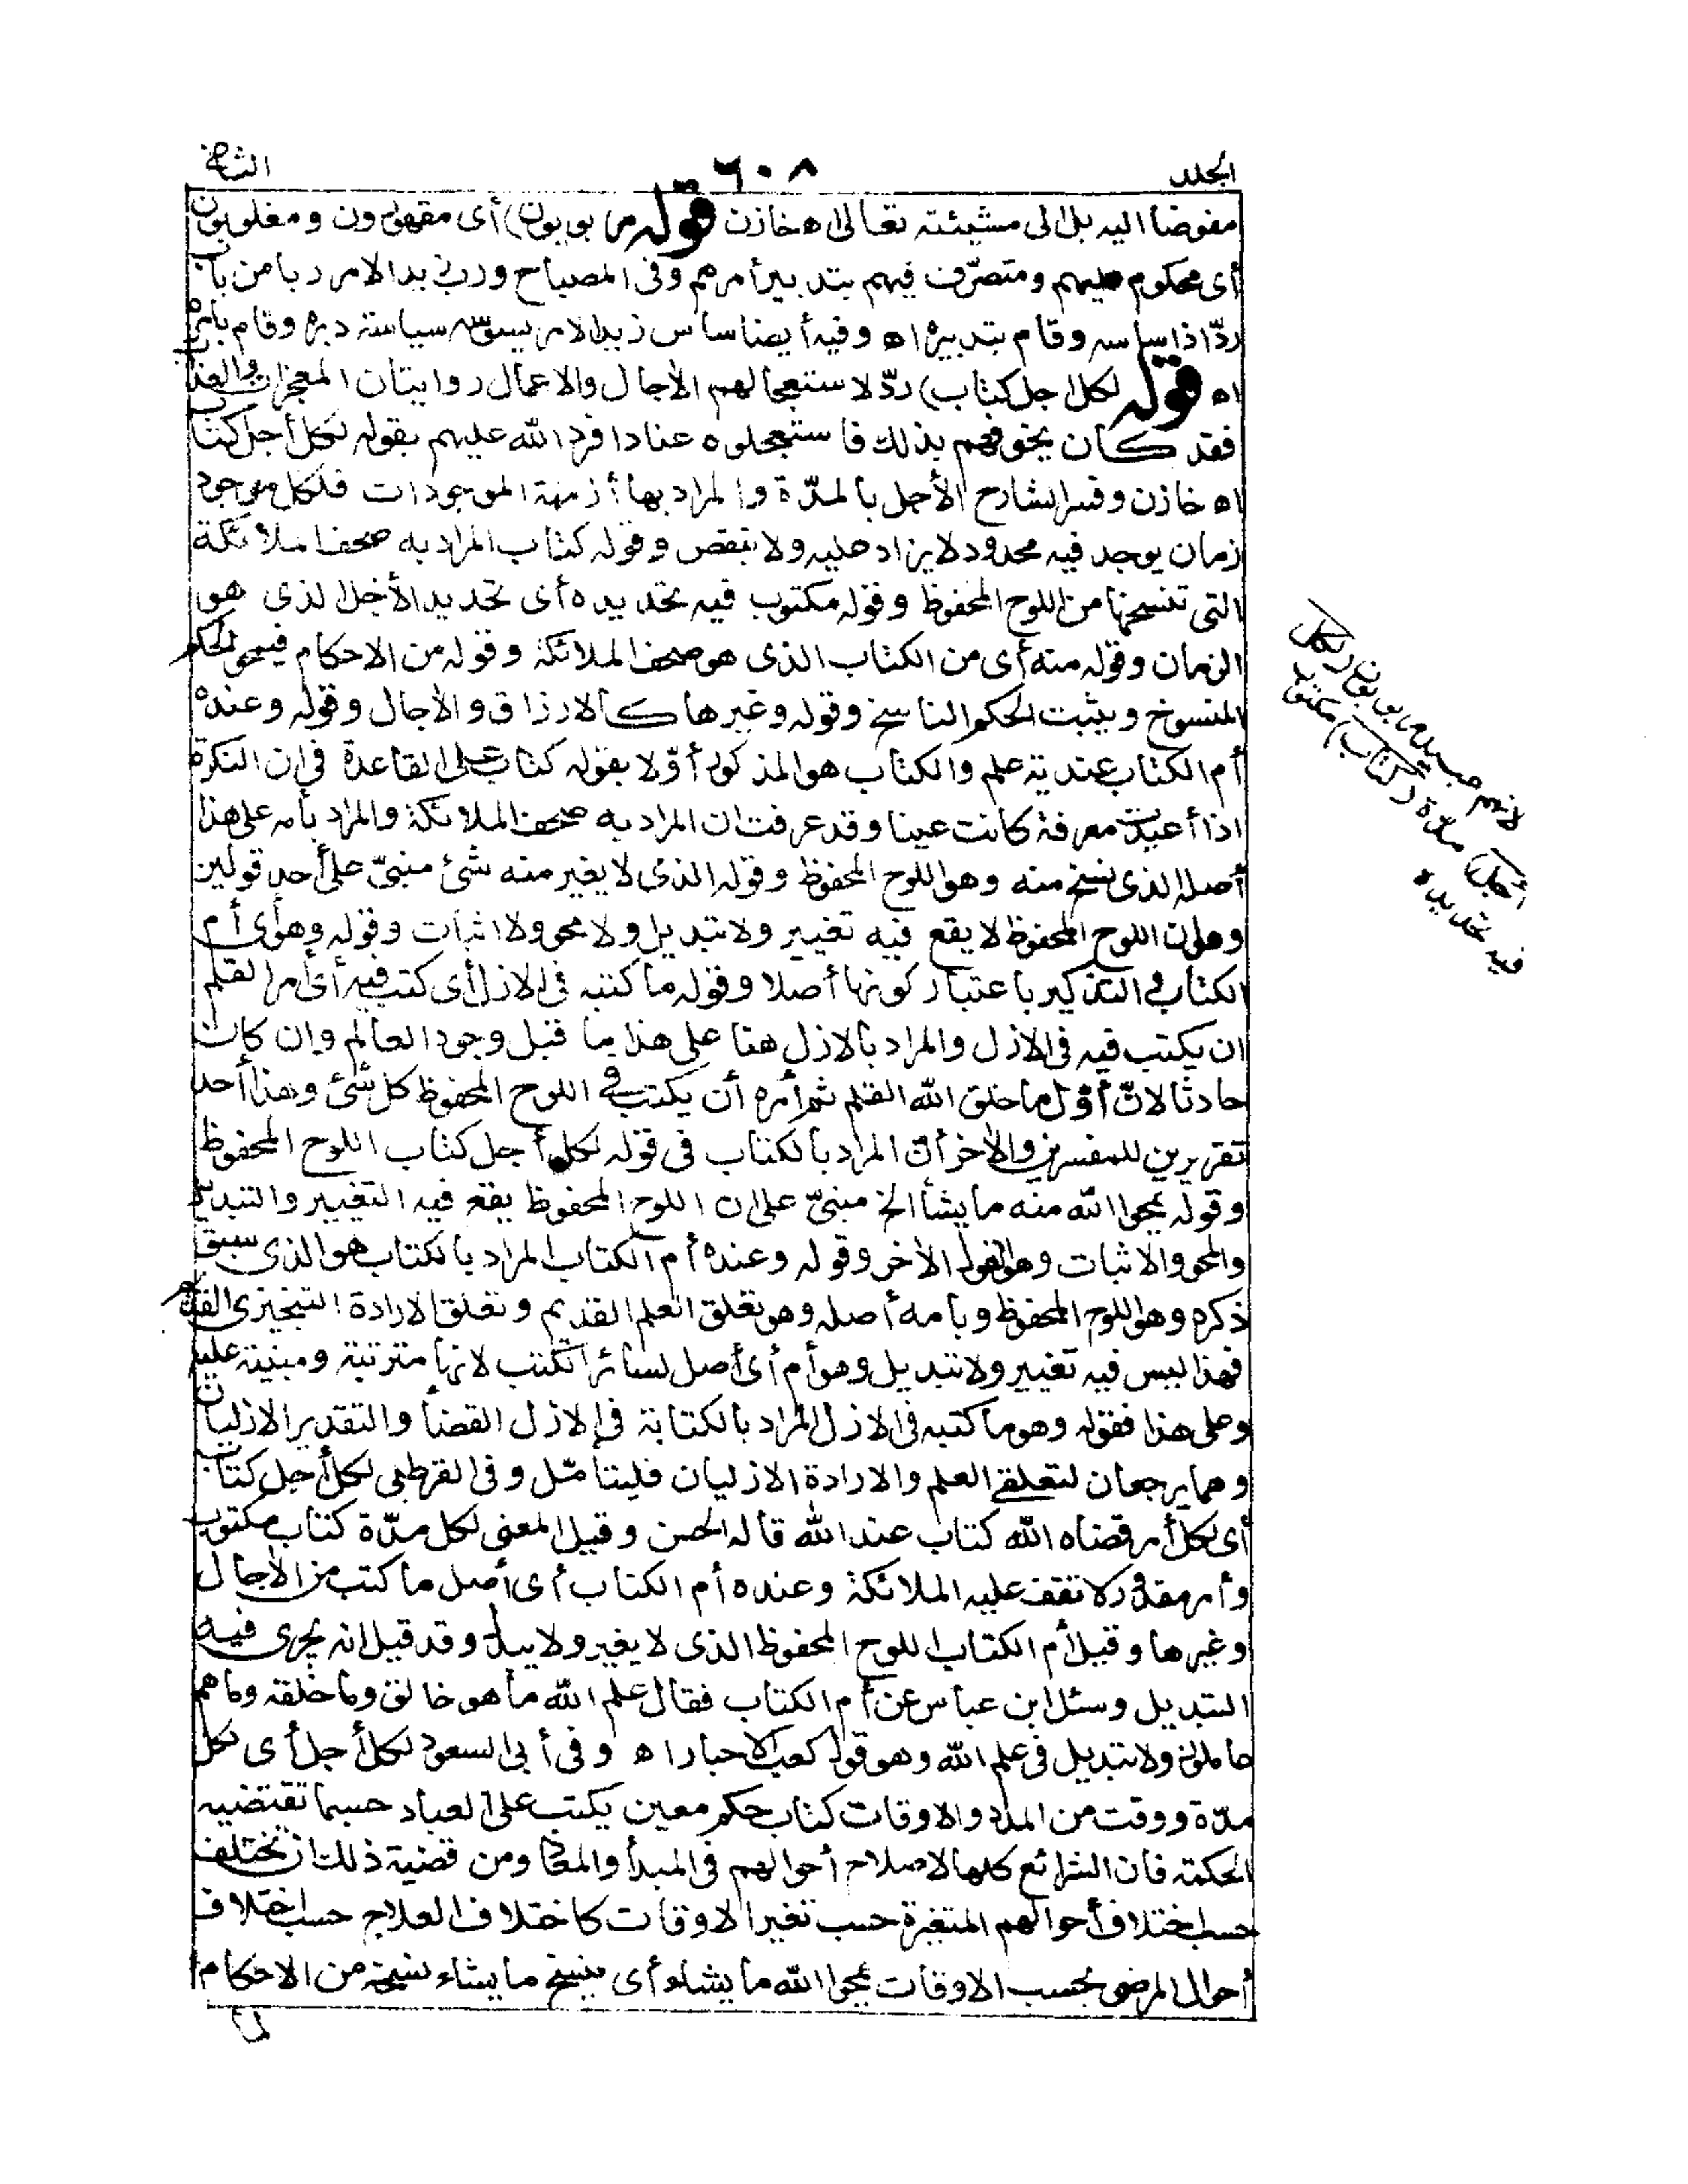 الجلد ٦٠٨ الثانی
مفوضا اليه بل الى مشيئته تعالى اه خازن قوله مربوبون) أى مقهورون ومغلوبون
أى محكوم عليهم ومتصرّف فيهم بتدبير أمرهم وفى المصباح ورب زيد الامر ربا من باب
ردّ اذا ساسه وقام بتدبيره اه وفيه أيضا ساس زيد الامر يسوسه سياسة دبره وقام بأمره
اه قوله لكل اجل كتاب) ردّ لاستعجالهم الآجال والاعمال واتيان المعجزات والعذاب
فقد كان يخوفهم بذلك فاستعجلوه عنادا فرد الله عليهم بقوله لكل أجل كتاب
اه خازن وفسر الشارح الأجل بالمدّة والمراد بها أزمنة الموجودات فلكل موجود
زمان يوجد فيه محدود لا يزاد عليه ولا ينقص وقوله كتاب المراد به صحف الملائكة
التى تنسخها من اللوح المحفوظ وقوله مكتوب فيه تحديده أى تحديد الأجل الذى هو
الزمان وقوله منه أى من الكتاب الذى هو صحف الملائكة وقوله من الاحكام فيمحو الحكم
المنسوخ ويثبت الحكم الناسخ وقوله وغيرها كالارزاق والآجال وقوله وعنده
أم الكتاب عندية علم والكتاب هو المذكور أوّلا بقوله كتاب على القاعدة فى ان النكرة
اذا أعيدت معرفة كانت عينا وقد عرفت ان المراد به صحف الملائكة والمراد بأمه على هذا
أصله الذى نسخ منه وهو اللوح المحفوظ وقوله الذى لا يغير منه شئ مبنىّ على أحد قولين
وهو ان اللوح المحفوظ لا يقع فيه تغيير ولا تبديل ولا محو ولا اثبات وقوله وهو أى أم
الكتاب فى التذكير باعتبار كونها أصلا وقوله ما كتبه فى الازل أى كتب فيه أى أمر القلم
ان يكتب فيه فى الازل والمراد بالازل هنا على هذا ما قبل وجود العالم وان كان
حادثا لانّ أوّل ما خلق الله القلم ثم أمره أن يكتب فى اللوح المحفوظ كل شئ وهذا أحد
تقريرين للمفسرين والآخر أنّ المراد بالكتاب فى قوله لكل أجل كتاب اللوح المحفوظ
وقوله يمحو الله منه ما يشأ الخ مبنىّ على ان اللوح المحفوظ يقع فيه التغيير والتبديل
والمحو والاثبات وهو القول الآخر وقوله وعنده أم الكتاب المراد بالكتاب هو الذى سبق
ذكره وهو اللوح المحفوظ وبأمه أصله وهو تعلق العلم القديم وتعلق الارادة التنجيزى القديم
فهذا ليس فيه تغيير ولا تبديل وهو أم أى أصل لسائر الكتب لانها مترتبة ومبنية عليه
وعلى هذا فقوله وهو ما كتبه فى الازل المراد بالكتابة فى الازل القضأ والتقدير الازليان
وهما يرجعان لتعلقى العلم والارادة الازليان فليتأمّل وفى القرطبى لكل أجل كتاب
أى لكل أمر قضاه الله كتاب عند الله قاله الحسن وقيل المعنى لكل مدّة كتاب مكتوب
وأمر مقدّر لا تقف عليه الملائكة وعنده أم الكتاب أى أصل ما كتب من الآجال
وغيرها وقيل أم الكتاب اللوح المحفوظ الذى لا يغير ولا يبدل وقد قيل انه يجرى فيه
التبديل وسئل ابن عباس عن أم الكتاب فقال علم الله ما هو خالق وما خلقه وما هم
عاملون ولا تبديل فى علم الله وهو قول كعب الاحبار اه وفى أبى السعود لكل أجل أى لكل
مدّة ووقت من المدد والاوقات كتاب حكم معين يكتب على العباد حسبما تقتضيه
الحكمة فان الشرائع كلها لاصلاح أحوالهم فى المبدأ والمعاد ومن قضية ذلك ان تختلف
حسب اختلاف أحوالهم المتغيرة حسب تغير الاوقات كاختلاف العلاج حسب اختلاف
أحوال المرضى بحسب الاوقات يمحو الله ما يشاء أى ينسخ ما يشاء نسخه من الاحكام
لما
لانهم عبيد مربوبون (لكل
أجل) مدّة (كتاب) مكتوب
فيه تحديده